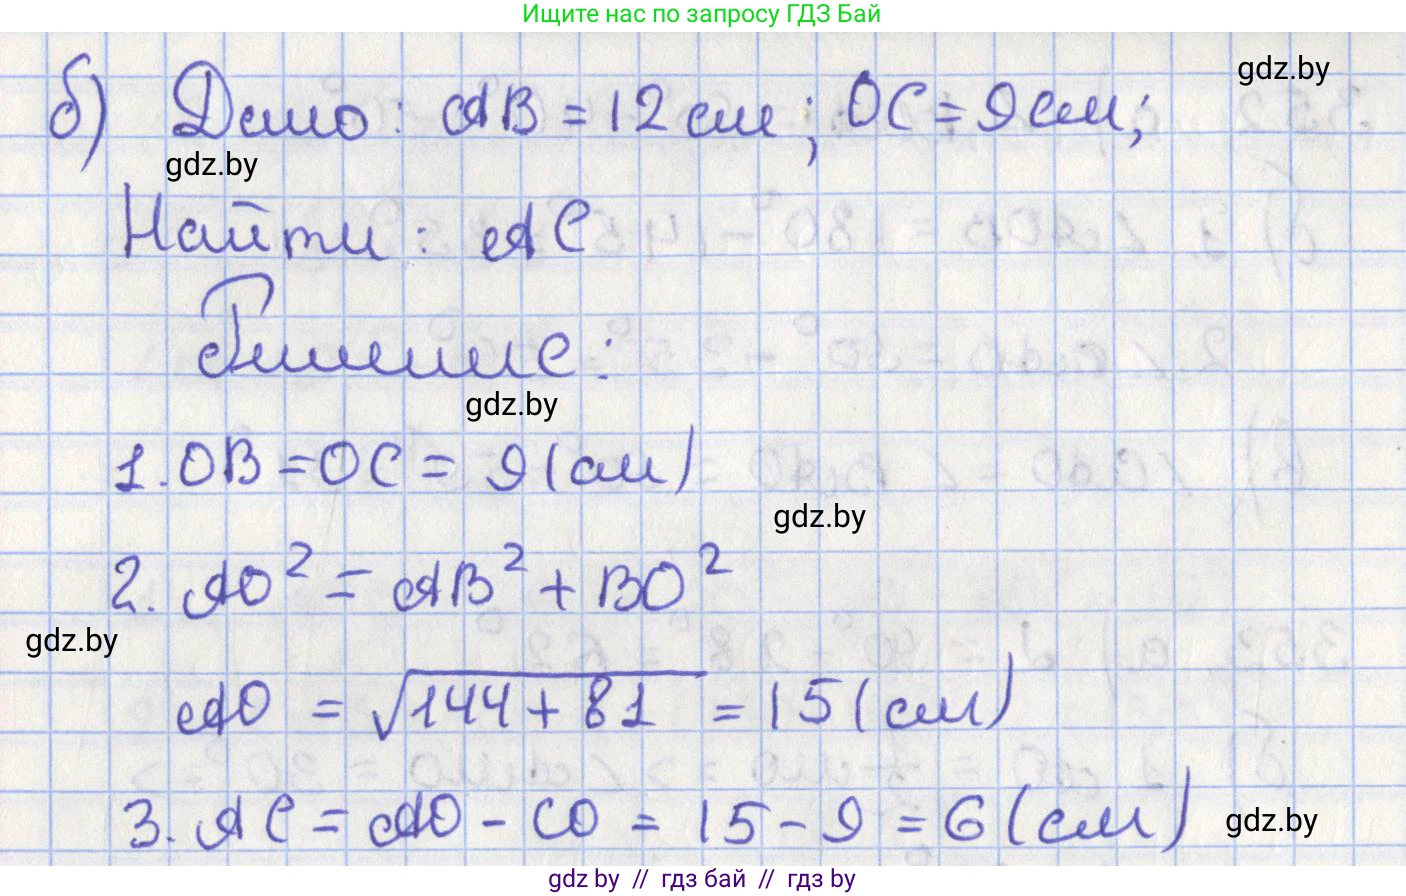 Ищите нас по запросу ГДЗ Бай
gdz.by
б) Дано: AB = 12 см; OC = 9 см;
gdz.by
Найти: AC
Решение:
gdz.by
1. OB = OC = 9 (см)
gdz.by
2. AO² = AB² + BO²
gdz.by
AO = √144 + 81 = 15 (см)
3. AC = AO - CO = 15 - 9 = 6 (см)
gdz.by
gdz by // гдз бай // гдз by